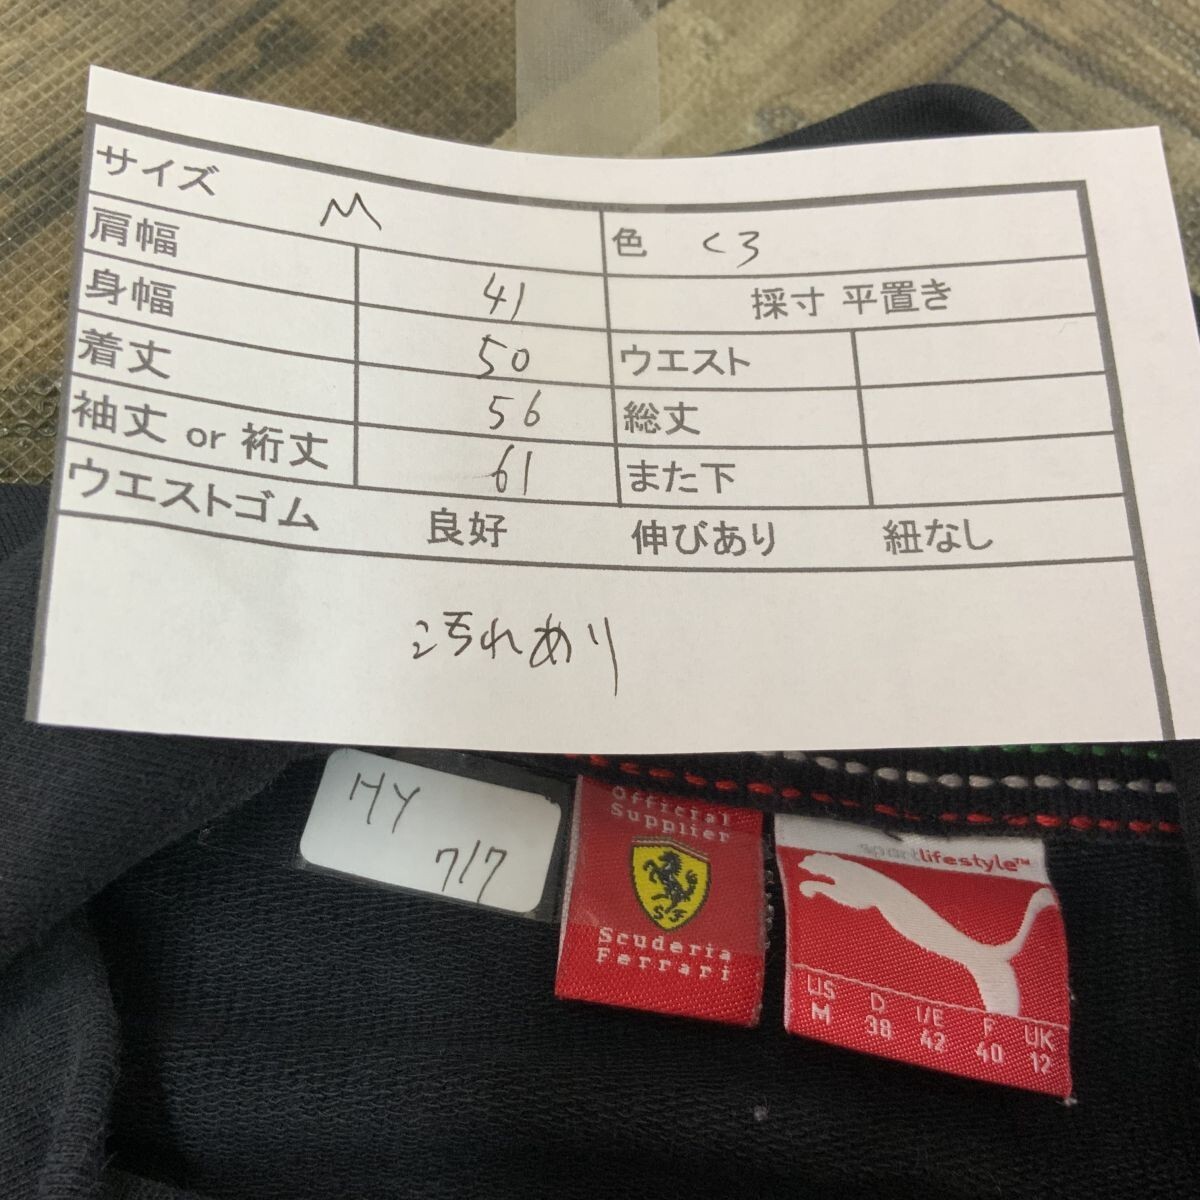 サイズ M
色 くろ
肩幅 41
採寸 平置き
身幅 50
ウエスト
着丈 56
総丈
袖丈 or 裄丈 61
また下
ウエストゴム 良好 伸びあり 紐なし
汚れあり
HY
717
Official
Supplier
SF
Scuderia
Ferrari
sportlifestyle™
US D I/E F UK
M 38 42 40 12